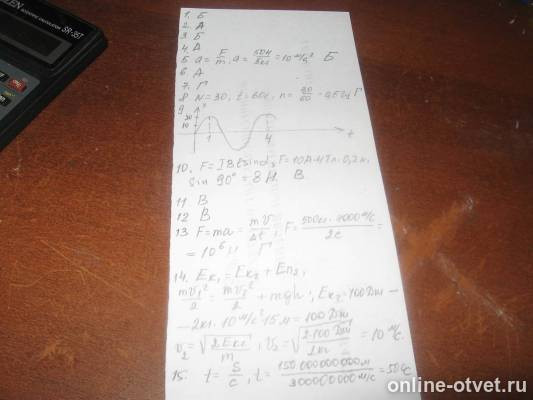 SR-35T
1. Б
2. А
3. Б
4. А
5 a = F/m, a = 50Н/5кг = 10 м/с² Б
6. А
7. Г
8 N=30, t=60с, n = 30/60 = 0,5Гц Г
9.
20
10
1
4
t
10. F = IBℓsinα, F = 10А·4Тл·0,2м·
sin 90° = 8 Н. В
11 В
12 В
13 F=ma = mv/Δt, F = 500кг·4000м/с/2с =
= 10⁶ н Г
14. Eк₁ = Eк₂ + Eп₂,
mv₁²/2 = mv₂²/2 + mgh; Eк₂
− 2кг · 10 м/с² 15 м = 100 Дж
v₂ = √(2Eк₂/m), v₂ = √(2·100Дж/2кг) = 10 м/с.
15. t = S/c, t = 150.000000000м/300000000м/с = 500с
online-otvet.ru